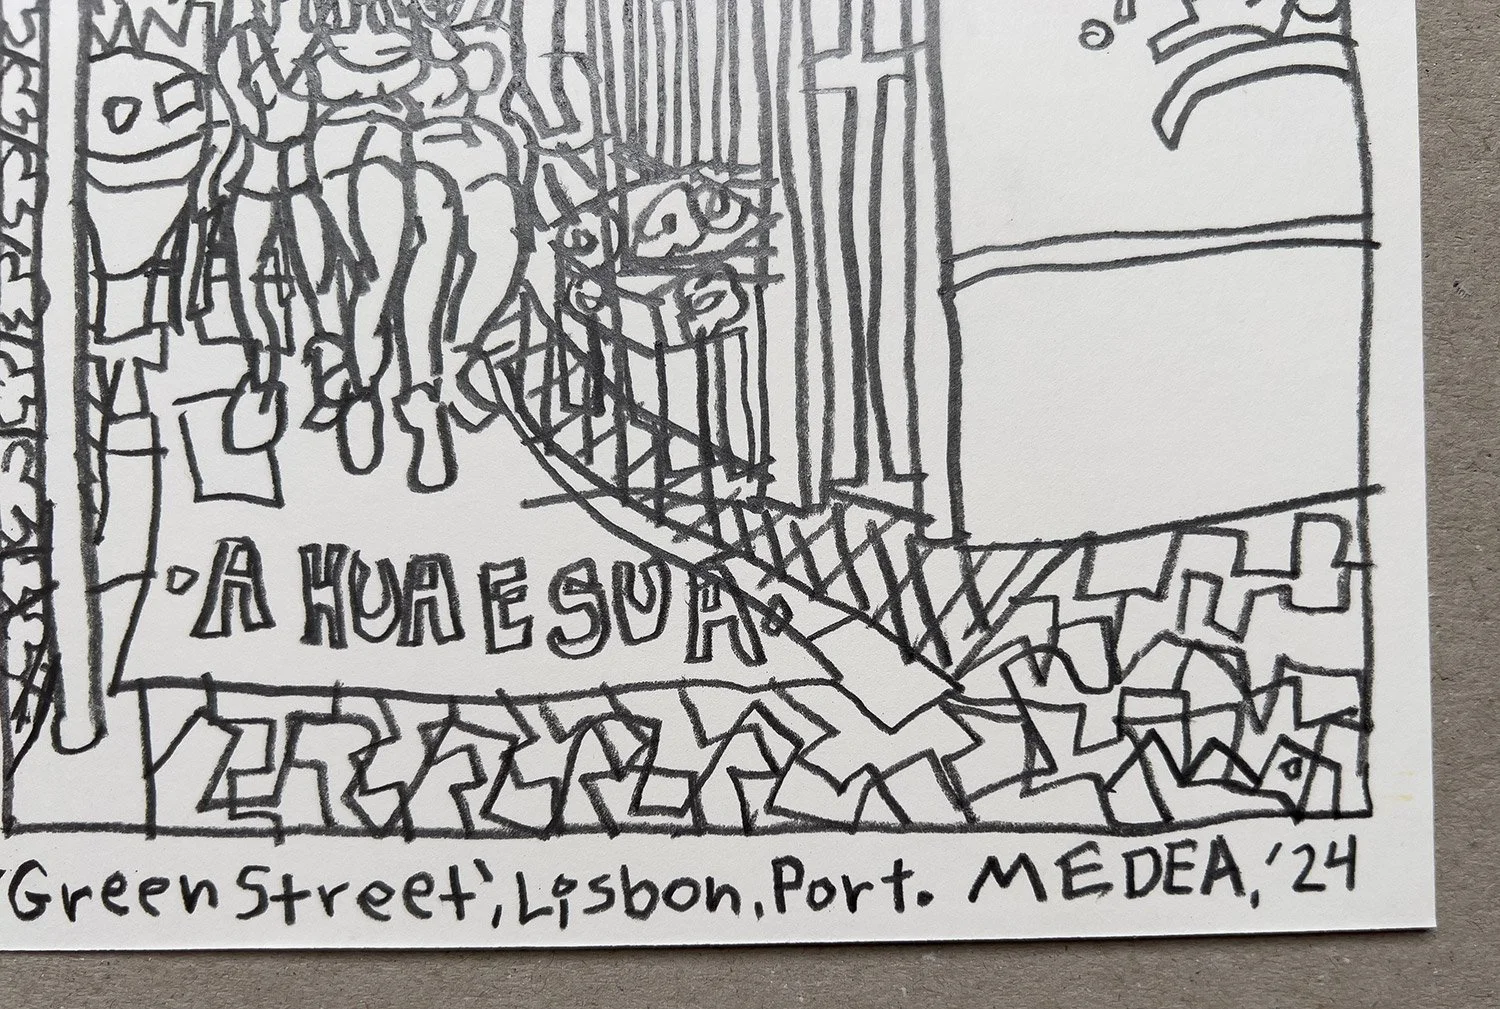 A HUA E SUA
'Green Street', Lisbon, Port. MEDEA, '24